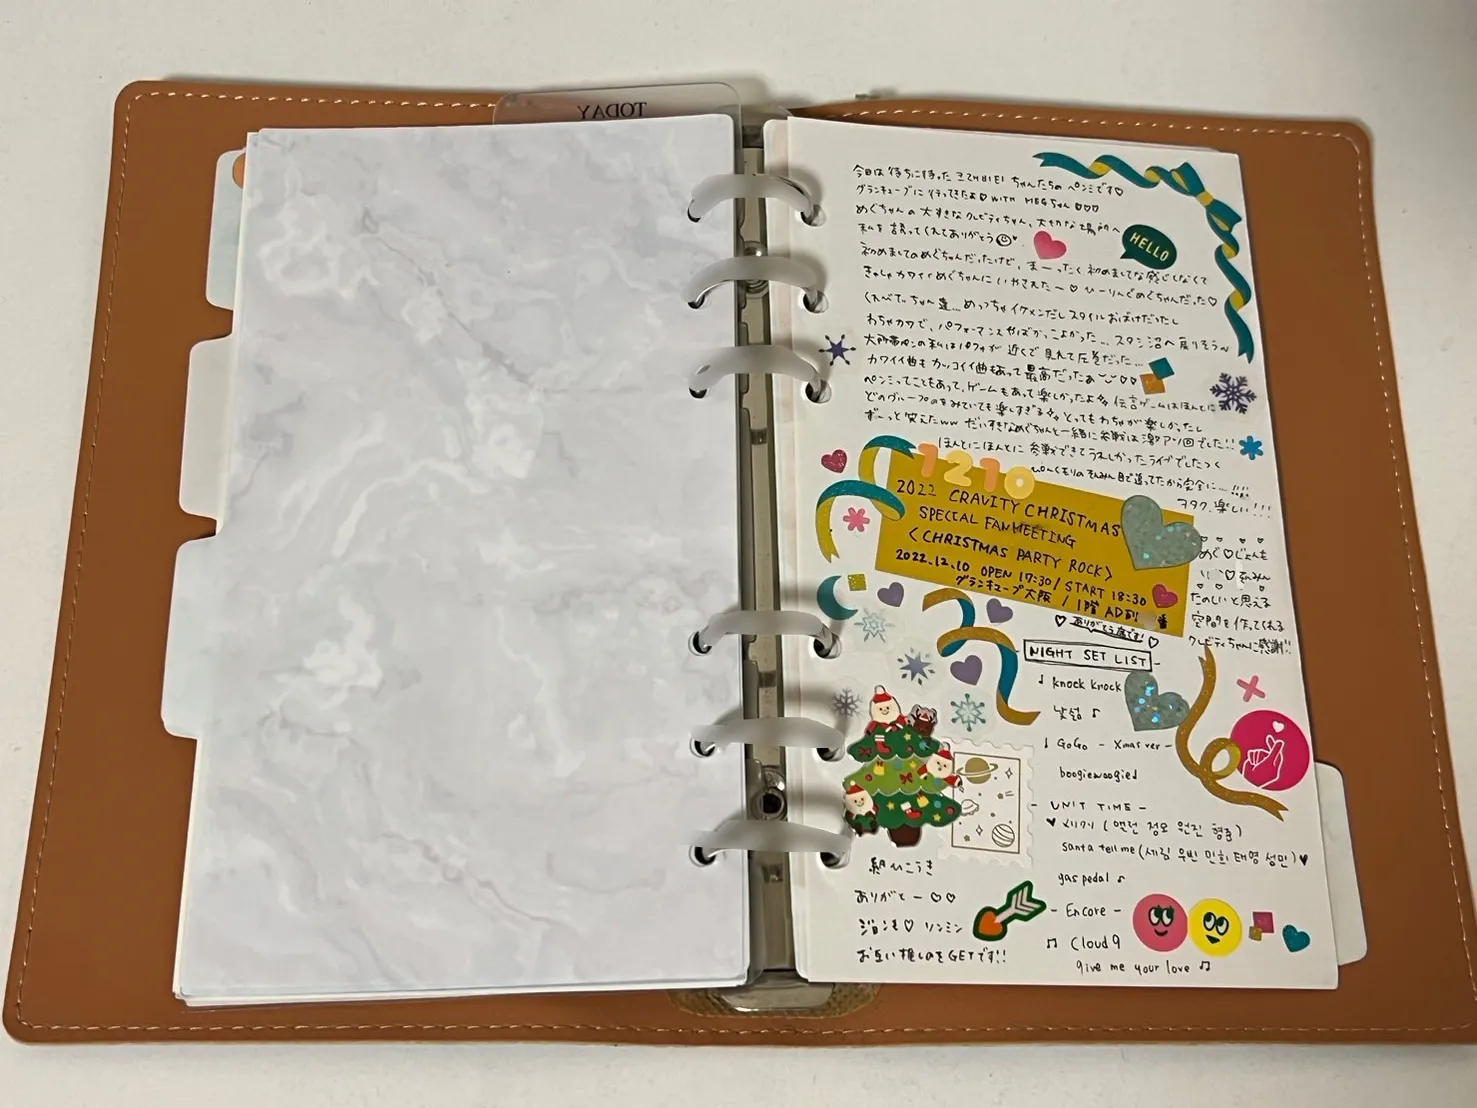 TODAY
今日は待ちに待った크래비티ちゃんたちのペンミです♡
グランキューブに行ってきたよ♡ WITH MEGちゃん♡♡♡
めぐちゃんの大すきなクレビティちゃん、大切な場所へ
私を誘ってくれてありがとう
HELLO
初めましてのめぐちゃんだったけど、まーったく初めましてな感じしなくて
きゃしゃカワイイめぐちゃんにいやされたー♡ ひーりんぐめぐちゃんだった♡
くれべてぃちゃん達...めっちゃイケメンだしスタイルおばけだったし
わちゃカワで、パフォーマンスやばかっこよかった...スタン沼へ戻りそう〜
大所帯ペンの私はパフォが近くで見れて圧巻だった...
カワイイ曲もカッコイイ曲もあって最高だったぁ ♡♡
ペンミってこともあって、ゲームもあって楽しかったよ 伝言ゲームはほんとに
どのグループのをみていても楽しすぎる とってもわちゃが楽しかったし
ずーっと笑えたww だいすきなめぐちゃんと一緒に参戦は激アツ回でした!!
ほんとにほんとに参戦できてうれしかったライブでしたっ
目で追ってたから完全に...!!!!
ヲタク、楽しい!!!
1210
2022 CRAVITY CHRISTMAS
SPECIAL FANMEETING
<CHRISTMAS PARTY ROCK>
2022.12.10 OPEN 17:30/START 18:30
グランキューブ大阪 / 1階 AD列 番
♡ ありがとう席です! ♡
めぐ♡じょんも
♡
たのしいと思える
空間を作ってくれる
クレビティちゃんに感謝!!
NIGHT SET LIST
♩ knock knock
♪
♩ GoGo - Xmas ver -
boogiewoogied
- UNIT TIME -
♥ メリクリ (앨런 정모 원진 형준)
santa tell me (세림 우빈 민희 태영 성민)♥
gas pedal ♪
- Encore -
♫ Cloud 9
give me your love ♫
ありがとー♡♡
ジョンモ♡リンミン
お互い推しのをGETです!!